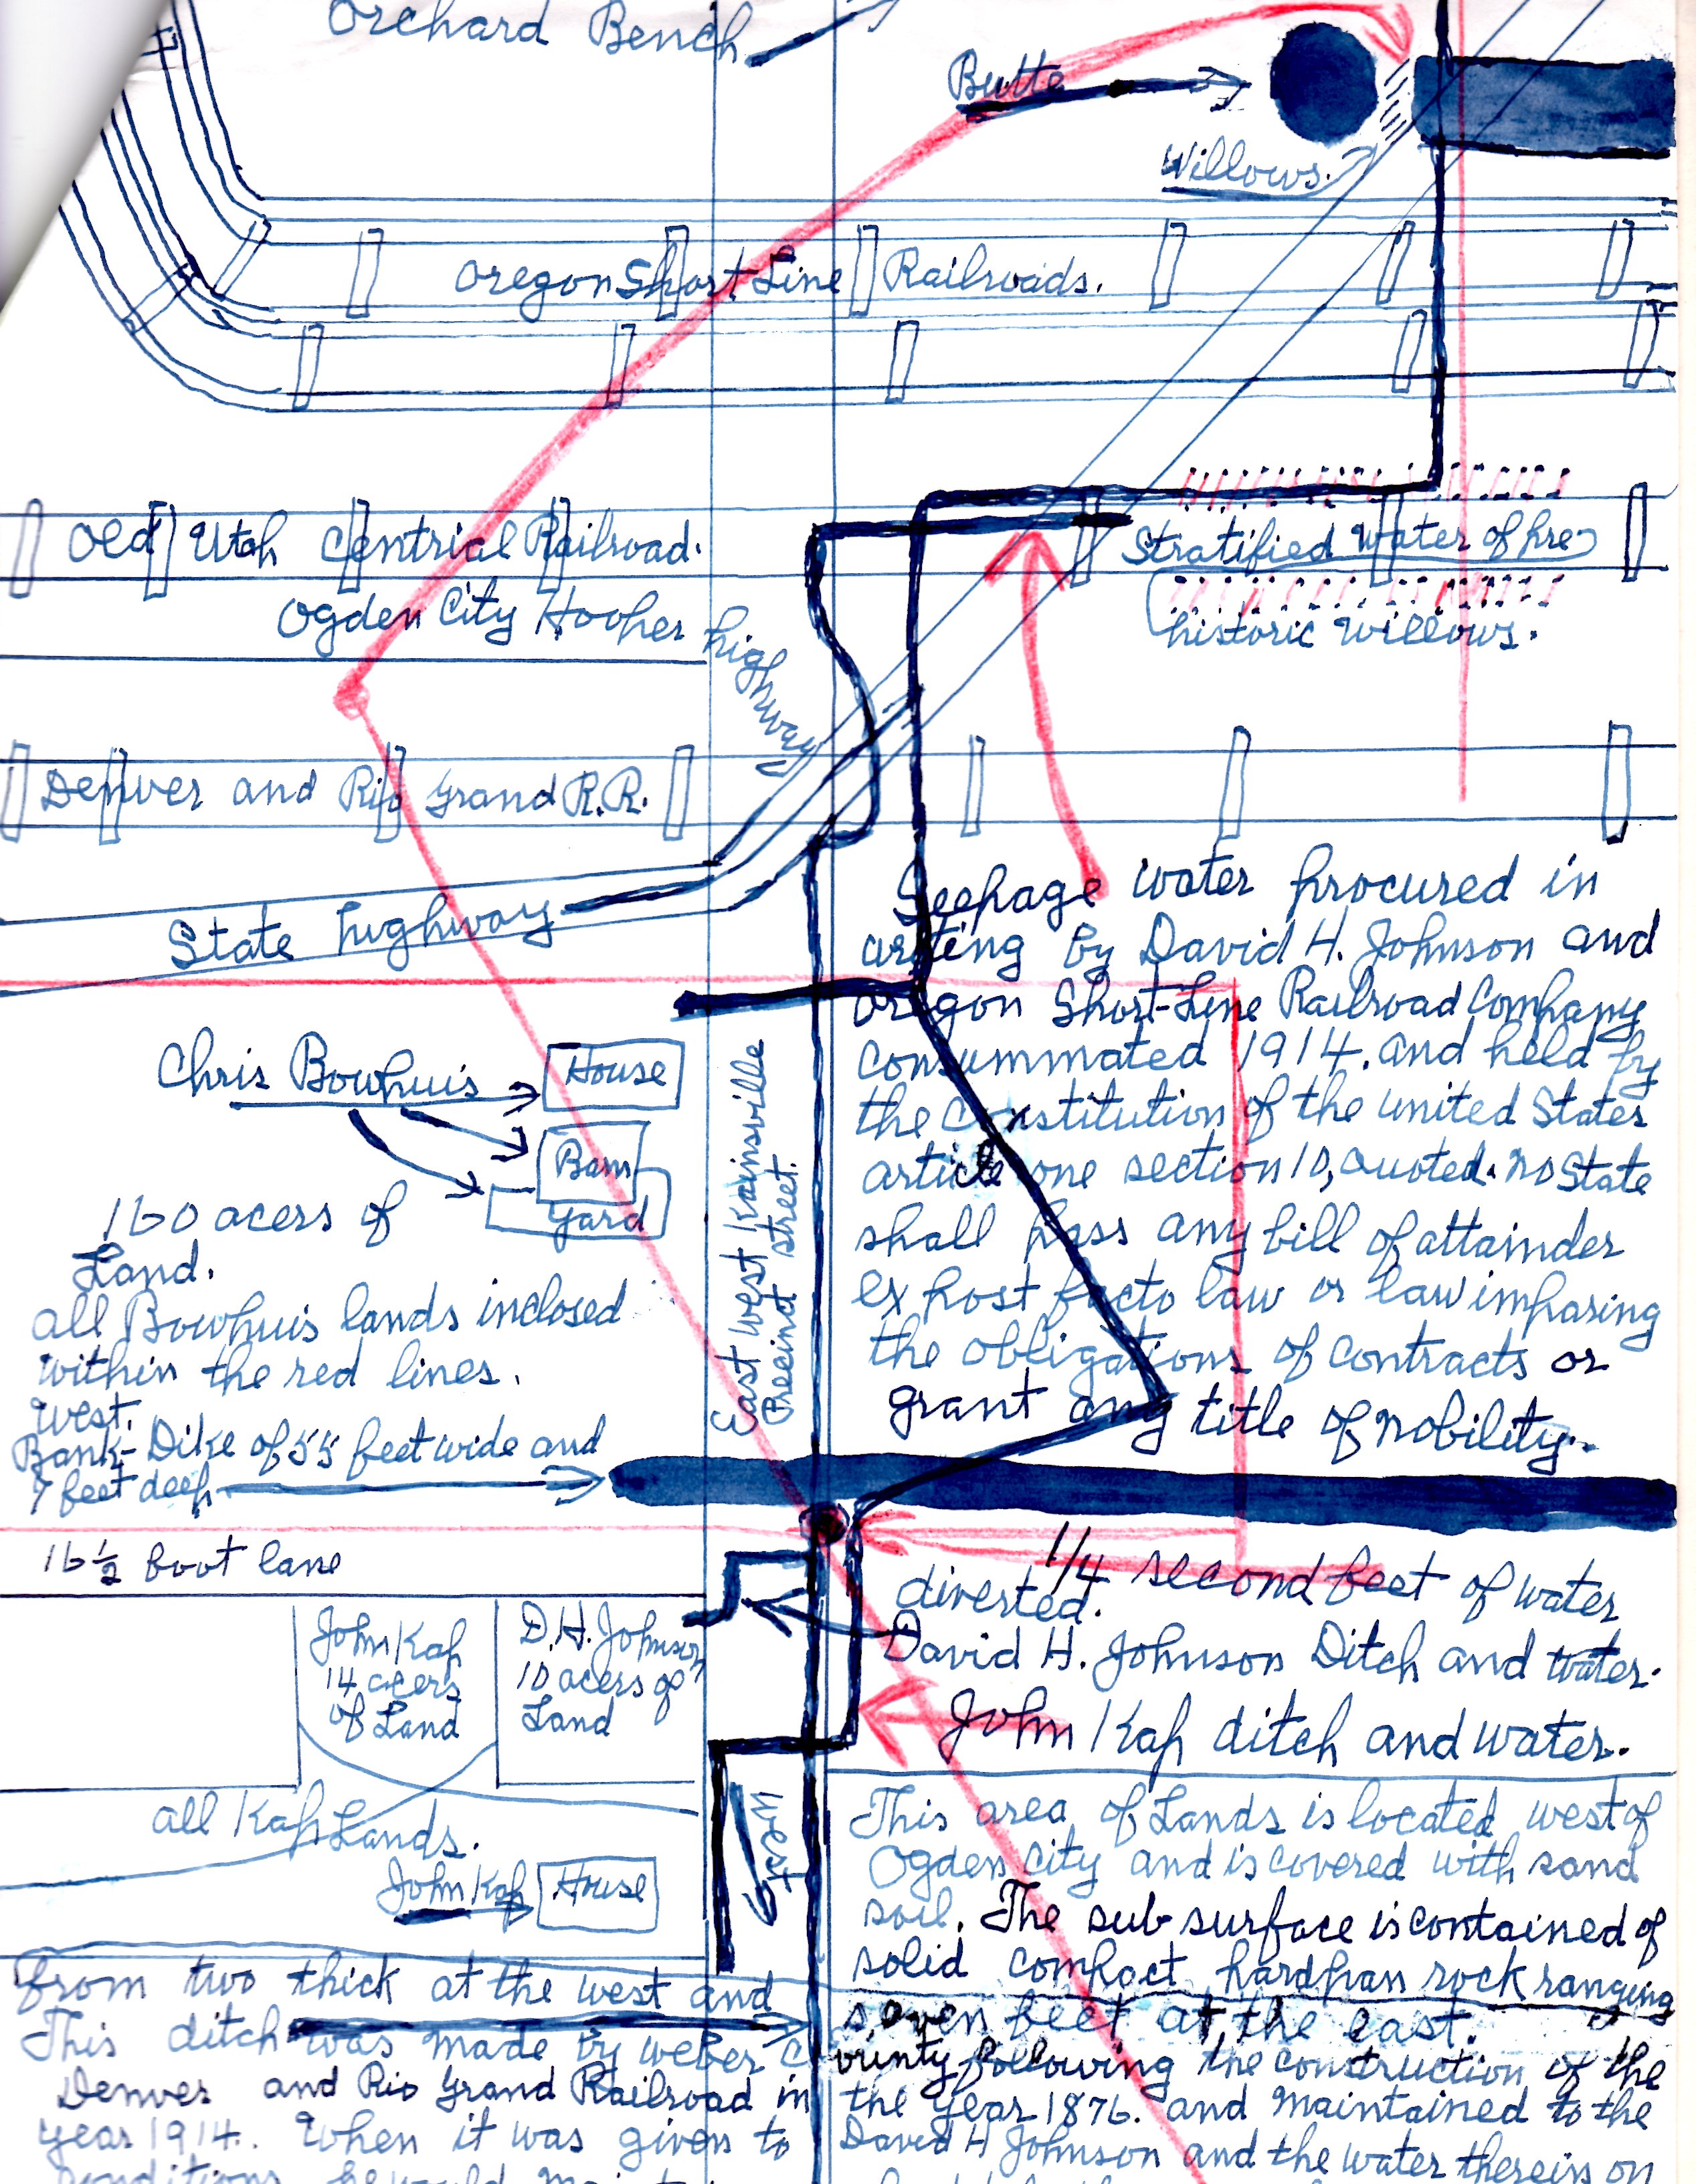 Orchard Bench
Butte
Willows.
Oregon Short Line Railroads.
Old Utah Centrial Railroad.
Stratified Water of pre
historic Willows.
Ogden City Hooper highway
Denver and Rio Grand R.R.
State highway
Seepage water procured in
writing by David H. Johnson and
Oregon Short-Line Railroad Company
consummated 1914. and held by
the Constitution of the United States
article one section 10, quoted. no State
shall pass any bill of attainder
ex post facto law or law imparing
the obligations of contracts or
grant any title of nobility.
Chris Bowhuis
House
Barn
Yard
160 acers of
Land.
all Bowhuis lands inclosed
within the red lines.
West.
Bank-Dike of 55 feet wide and
7 feet deep
East West Kainsville
Precinct street.
16 1/2 foot lane
1/4 second feet of water
diverted.
David H. Johnson Ditch and water.
John Kap ditch and water.
John Kap
14 acers
of Land
D.H. Johnson
10 acers of
Land
all Kap Lands.
John Kap House
West
This area of Lands is located west of
Ogden City and is covered with sand
soil. The sub surface is contained of
solid compact hardpan rock ranging
from two thick at the west and seven feet at the east.
This ditch was made by Weber County following the construction of the
Denver and Rio Grand Railroad in the year 1876. and maintained to the
year 1914. When it was given to David H Johnson and the water therein on
conditions he would